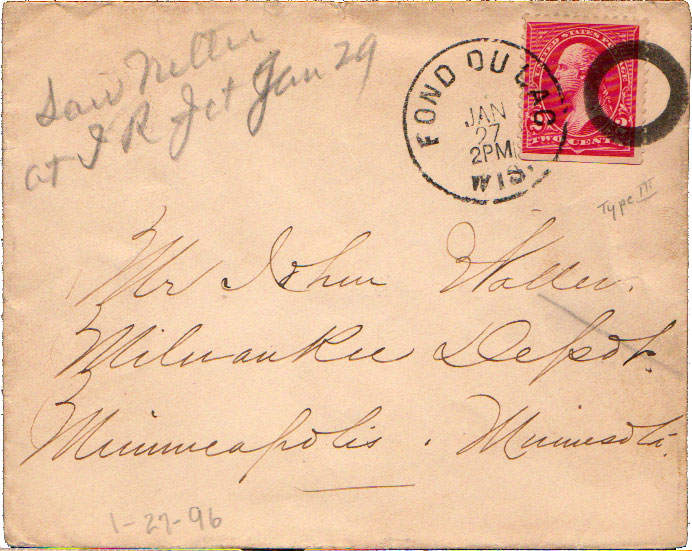 Saw Nellie
at I R Jct Jan 29
FOND DU LAC
JAN
27
2PM
WIS.
UNITED STATES POSTAGE
2 2
TWO CENTS
Type III
Mr John Waller.
Milwaukee Depot.
Minneapolis. Minnesota.
1-27-96